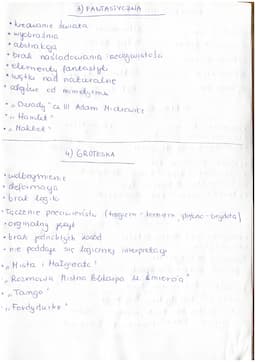 3) FANTASTYCZNA
• kreowanie świata
• wyobraźnia
• abstrakcja
• brak naśladowania rzeczywistości
• elementy fantastyki
• wątki nad naturalne
• odejście od mimetyzmu
• „Dziady" cz III Adam Mickiewicz
• „Hamlet"
• „Makbet"
4) GROTESKA
• wyolbrzymienie
• deformacja
• brak logiki
• łączenie przeciwieństw (tragizm - komizm, piękno - brzydota)
• oryginalny język
• brak jednolitych zasad
• nie poddaje się logicznej interpretacji
• „Mistrz i Małgorzata"
„Rozmowa Mistrza Polikarpa ze śmiercią"
• „Tango"
• „Ferdydurke"